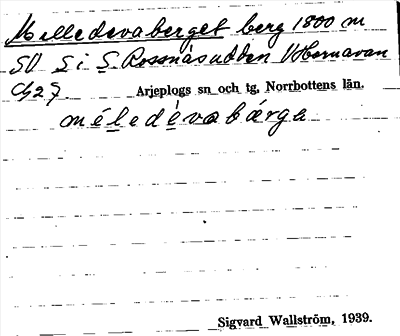 Melledevaberget berg 1800 m
SV S i S. Rossnäsudden Hornavan
Arjeplogs sn och tg, Norrbottens län.
méledévabárga
Sigvard Wallström, 1939.